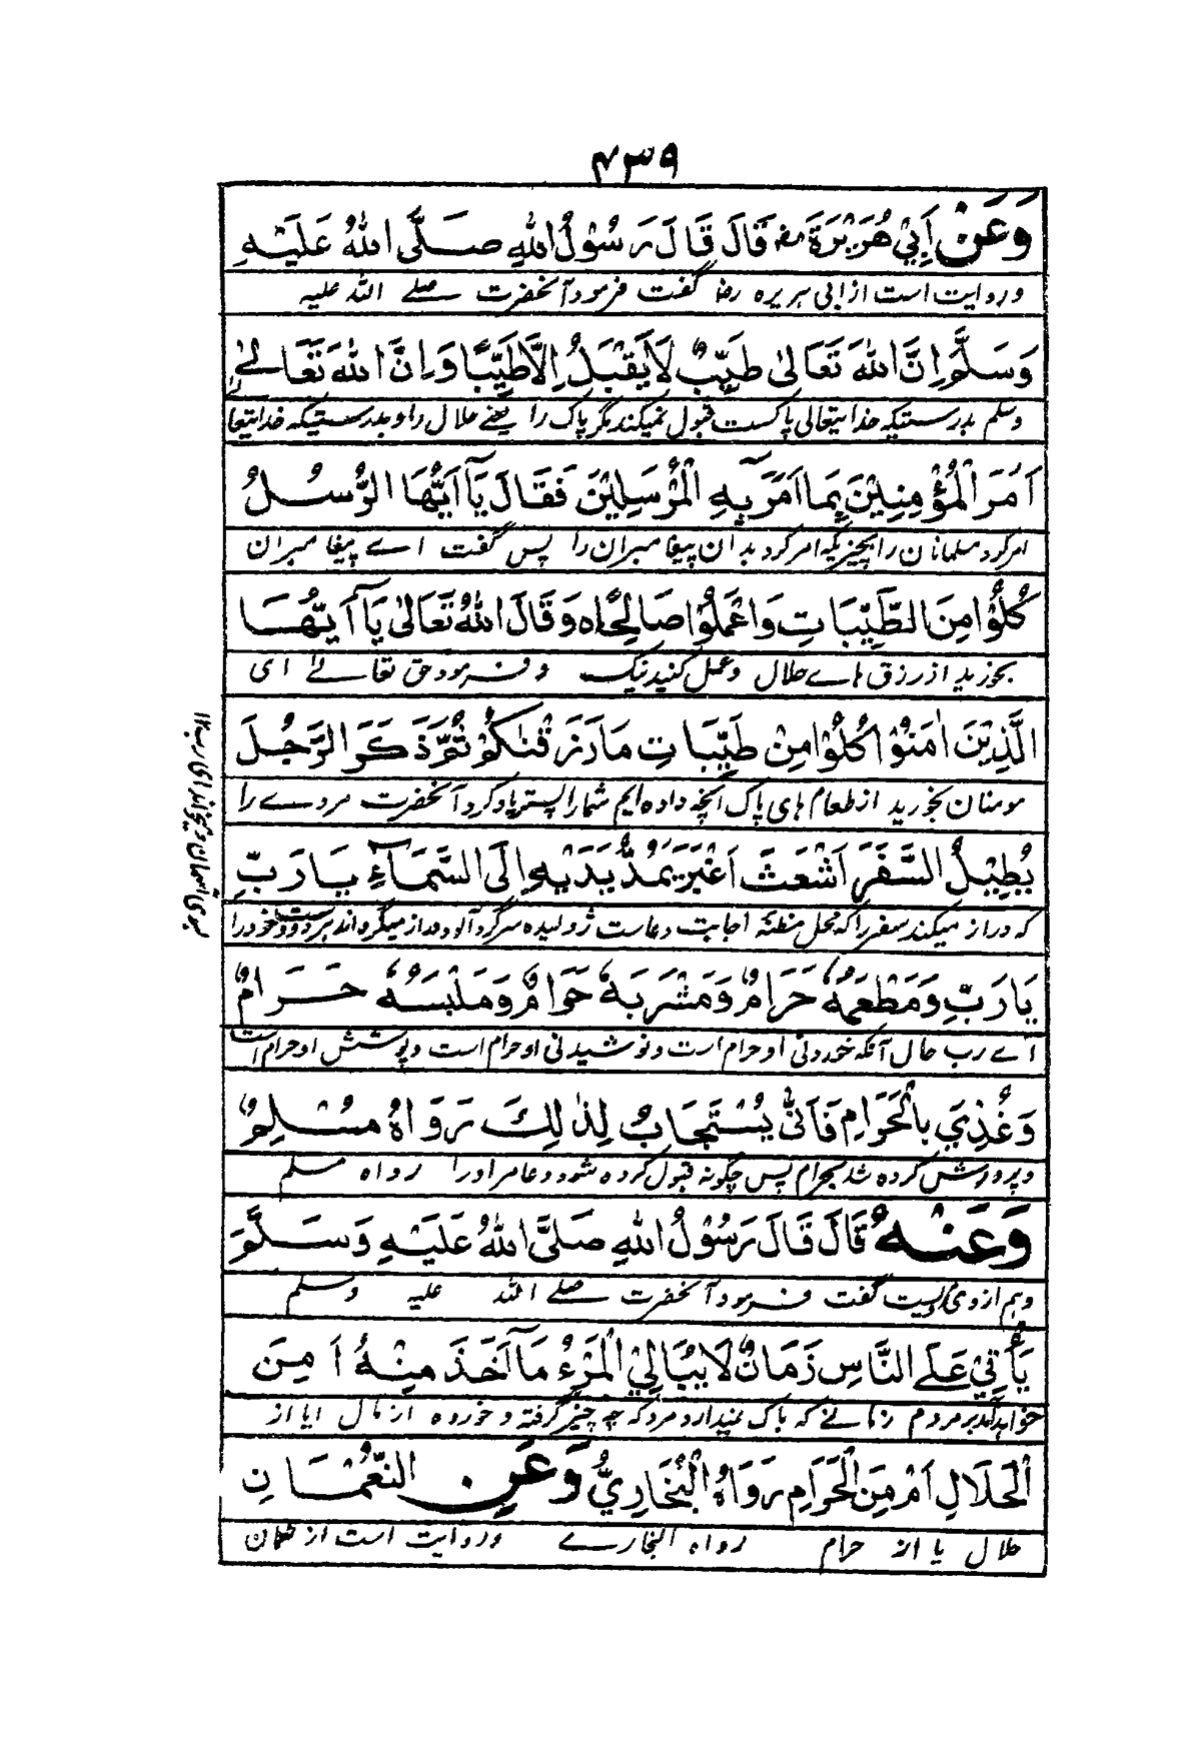 ۴۳۹
وَعَنْ اَبِيْ هُرَيْرَةَ رض قَالَ قَالَ رَسُوْلُ اللهِ صَلَّى اللهُ عَلَيْهِ
و روایت است از ابی هریره رضا گفت فرمود آنحضرت صلے الله علیه
وَسَلَّمَ اِنَّ اللهَ تَعَالىٰ طَيِّبٌ لَا يَقْبَلُ اِلَّا طَيِّبًا وَاِنَّ اللهَ تَعَالےٰ
وسلم بدرستیکه خدایتعالی پاکست قبول نمیکند مگر پاک را یعنے حلال را و بدرستیکه خدایتعالے
اَمَرَ الْمُؤْمِنِيْنَ بِمَا اَمَرَ بِهِ الْمُرْسَلِيْنَ فَقَالَ يَآ اَيُّهَا الرُّسُلُ
امر کرد مسلمانان را بچیزیکه امر کرد بدان پیغامبران را پس گفت اے پیغامبران
كُلُوْا مِنَ الطَّيِّبَاتِ وَاعْمَلُوْا صَالِحًا ه وَقَالَ اللهُ تَعَالىٰ يَآ اَيُّهَا
بخورید از رزق هاے حلال وعمل کنید نیک وفرمود حق تعالےٰ ای
الَّذِيْنَ اٰمَنُوْا كُلُوْا مِنْ طَيِّبَاتِ مَا رَزَقْنٰكُمْ ثُمَّ ذَكَرَ الرَّجُلَ
مومنان بخورید از طعام های پاک آنچه داده ایم شما را پستر یاد کرد آنحضرت مردے را
يُطِيْلُ السَّفَرَ اَشْعَثَ اَغْبَرَ يَمُدُّ يَدَيْهِ اِلَى السَّمَآءِ يَا رَبِّ
که دراز میکند سفر را که محل مظنه اجابت دعاست ژولیده سر گرد آلوده دراز میگرداند هر دو دست خود را
يَا رَبِّ وَمَطْعَمُهٗ حَرَامٌ وَمَشْرَبُهٗ حَرَامٌ وَمَلْبَسُهٗ حَرَامٌ
اے رب حال آنکه خوردنی او حرام است و نوشیدنی او حرام است و پوشش او حرام است
وَغُذِيَ بِالْحَرَامِ فَاَنّٰى يُسْتَجَابُ لِذٰلِكَ رَوَاهُ مُسْلِمٌ
و پرورش کرده شد بحرام پس چگونه قبول کرده شود دعا مر اورا رواه مسلم
وَعَنْهُ قَالَ قَالَ رَسُوْلُ اللهِ صَلَّى اللهُ عَلَيْهِ وَسَلَّمَ
وهم ازوی مرویست گفت فرمود آنحضرت صلے الله علیه وسلم
يَأْتِيْ عَلَے النَّاسِ زَمَانٌ لَا يُبَالِي الْمَرْءُ مَآ اَخَذَ مِنْهُ اَ مِنَ
خواهد آمد بر مردم زمانے که باک نمیدارد مرد که چه چیز گرفته و خورده از مال ایا از
الْحَلَالِ اَمْ مِنَ الْحَرَامِ رَوَاهُ الْبُخَارِيُّ وَعَنِ النُّعْمَانِ
حلال یا از حرام رواه البخارے وروایت است از نعمان